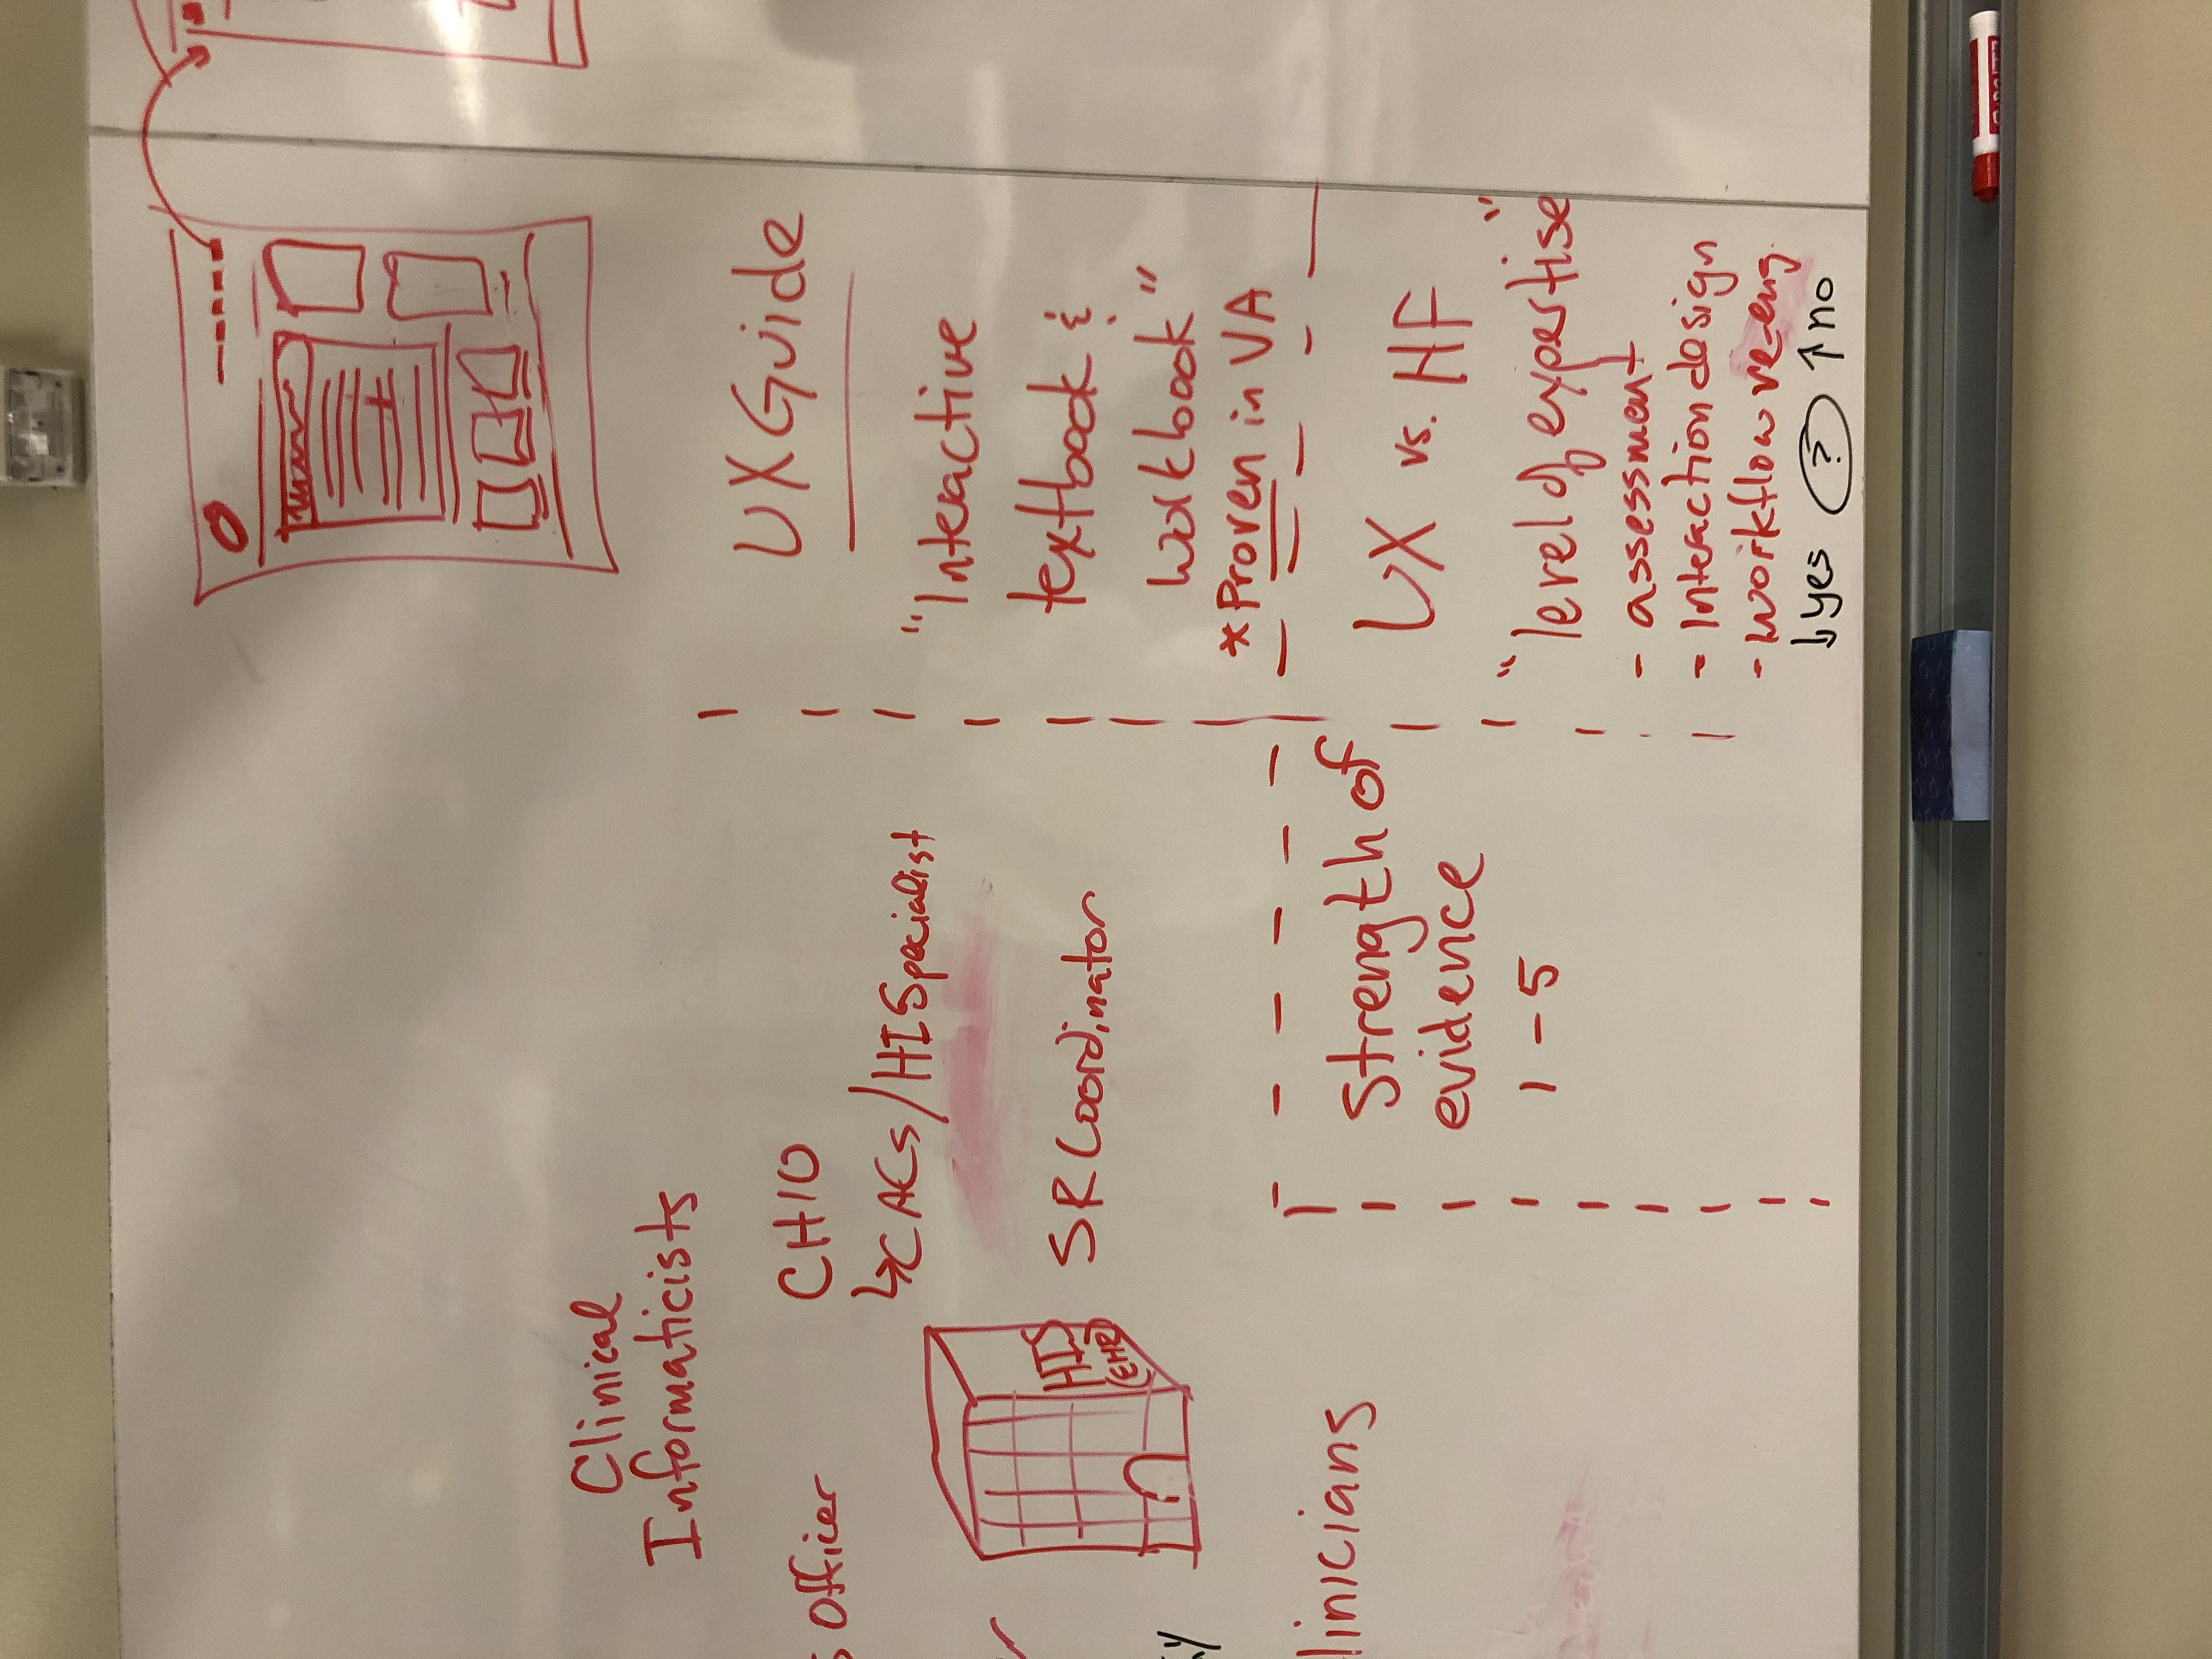 Clinical
Informaticists
s Officer
CHIO
↳CACs/HI Specialist
HIS
(EHR)
SR Coordinator
linicians
Strength of
evidence
1-5
UX Guide
"Interactive
textbook &
workbook"
*Proven in VA
UX vs. HF
"level of expertise"
- assessment
- Interaction design
- workflow re-eng.
↓yes ? ↑no